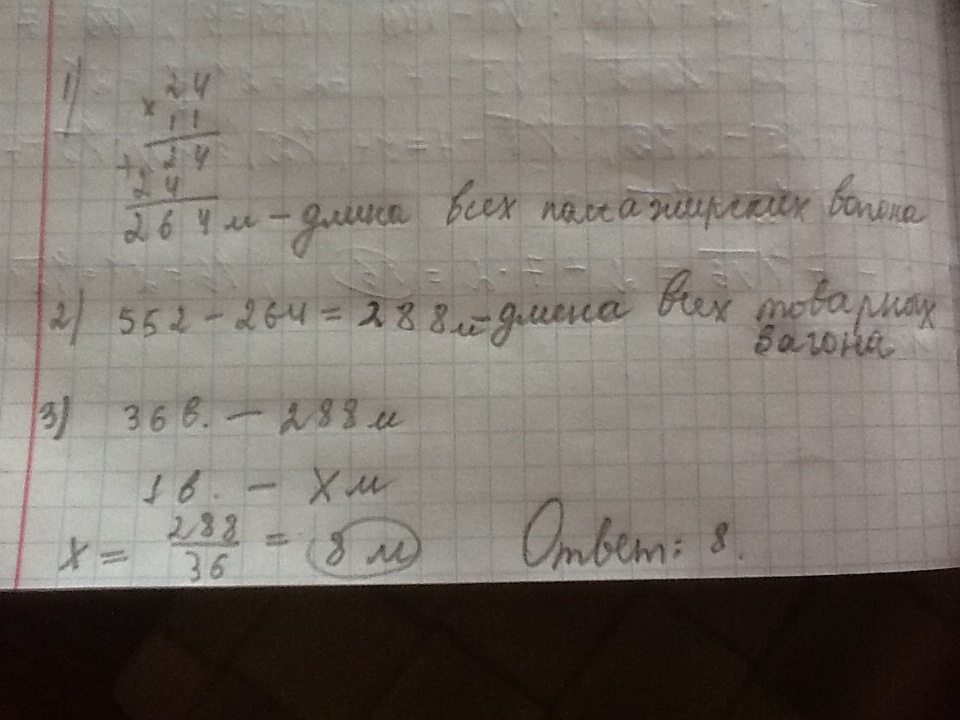 1) 24
× 11
+ 24
24
264 м - длина всех пассажирских вагона
2) 552 - 264 = 288 м - длина всех товарных
вагона
3) 36 в. — 288 м
1 в. — X м
x = 288/36 = 8 м Ответ: 8.